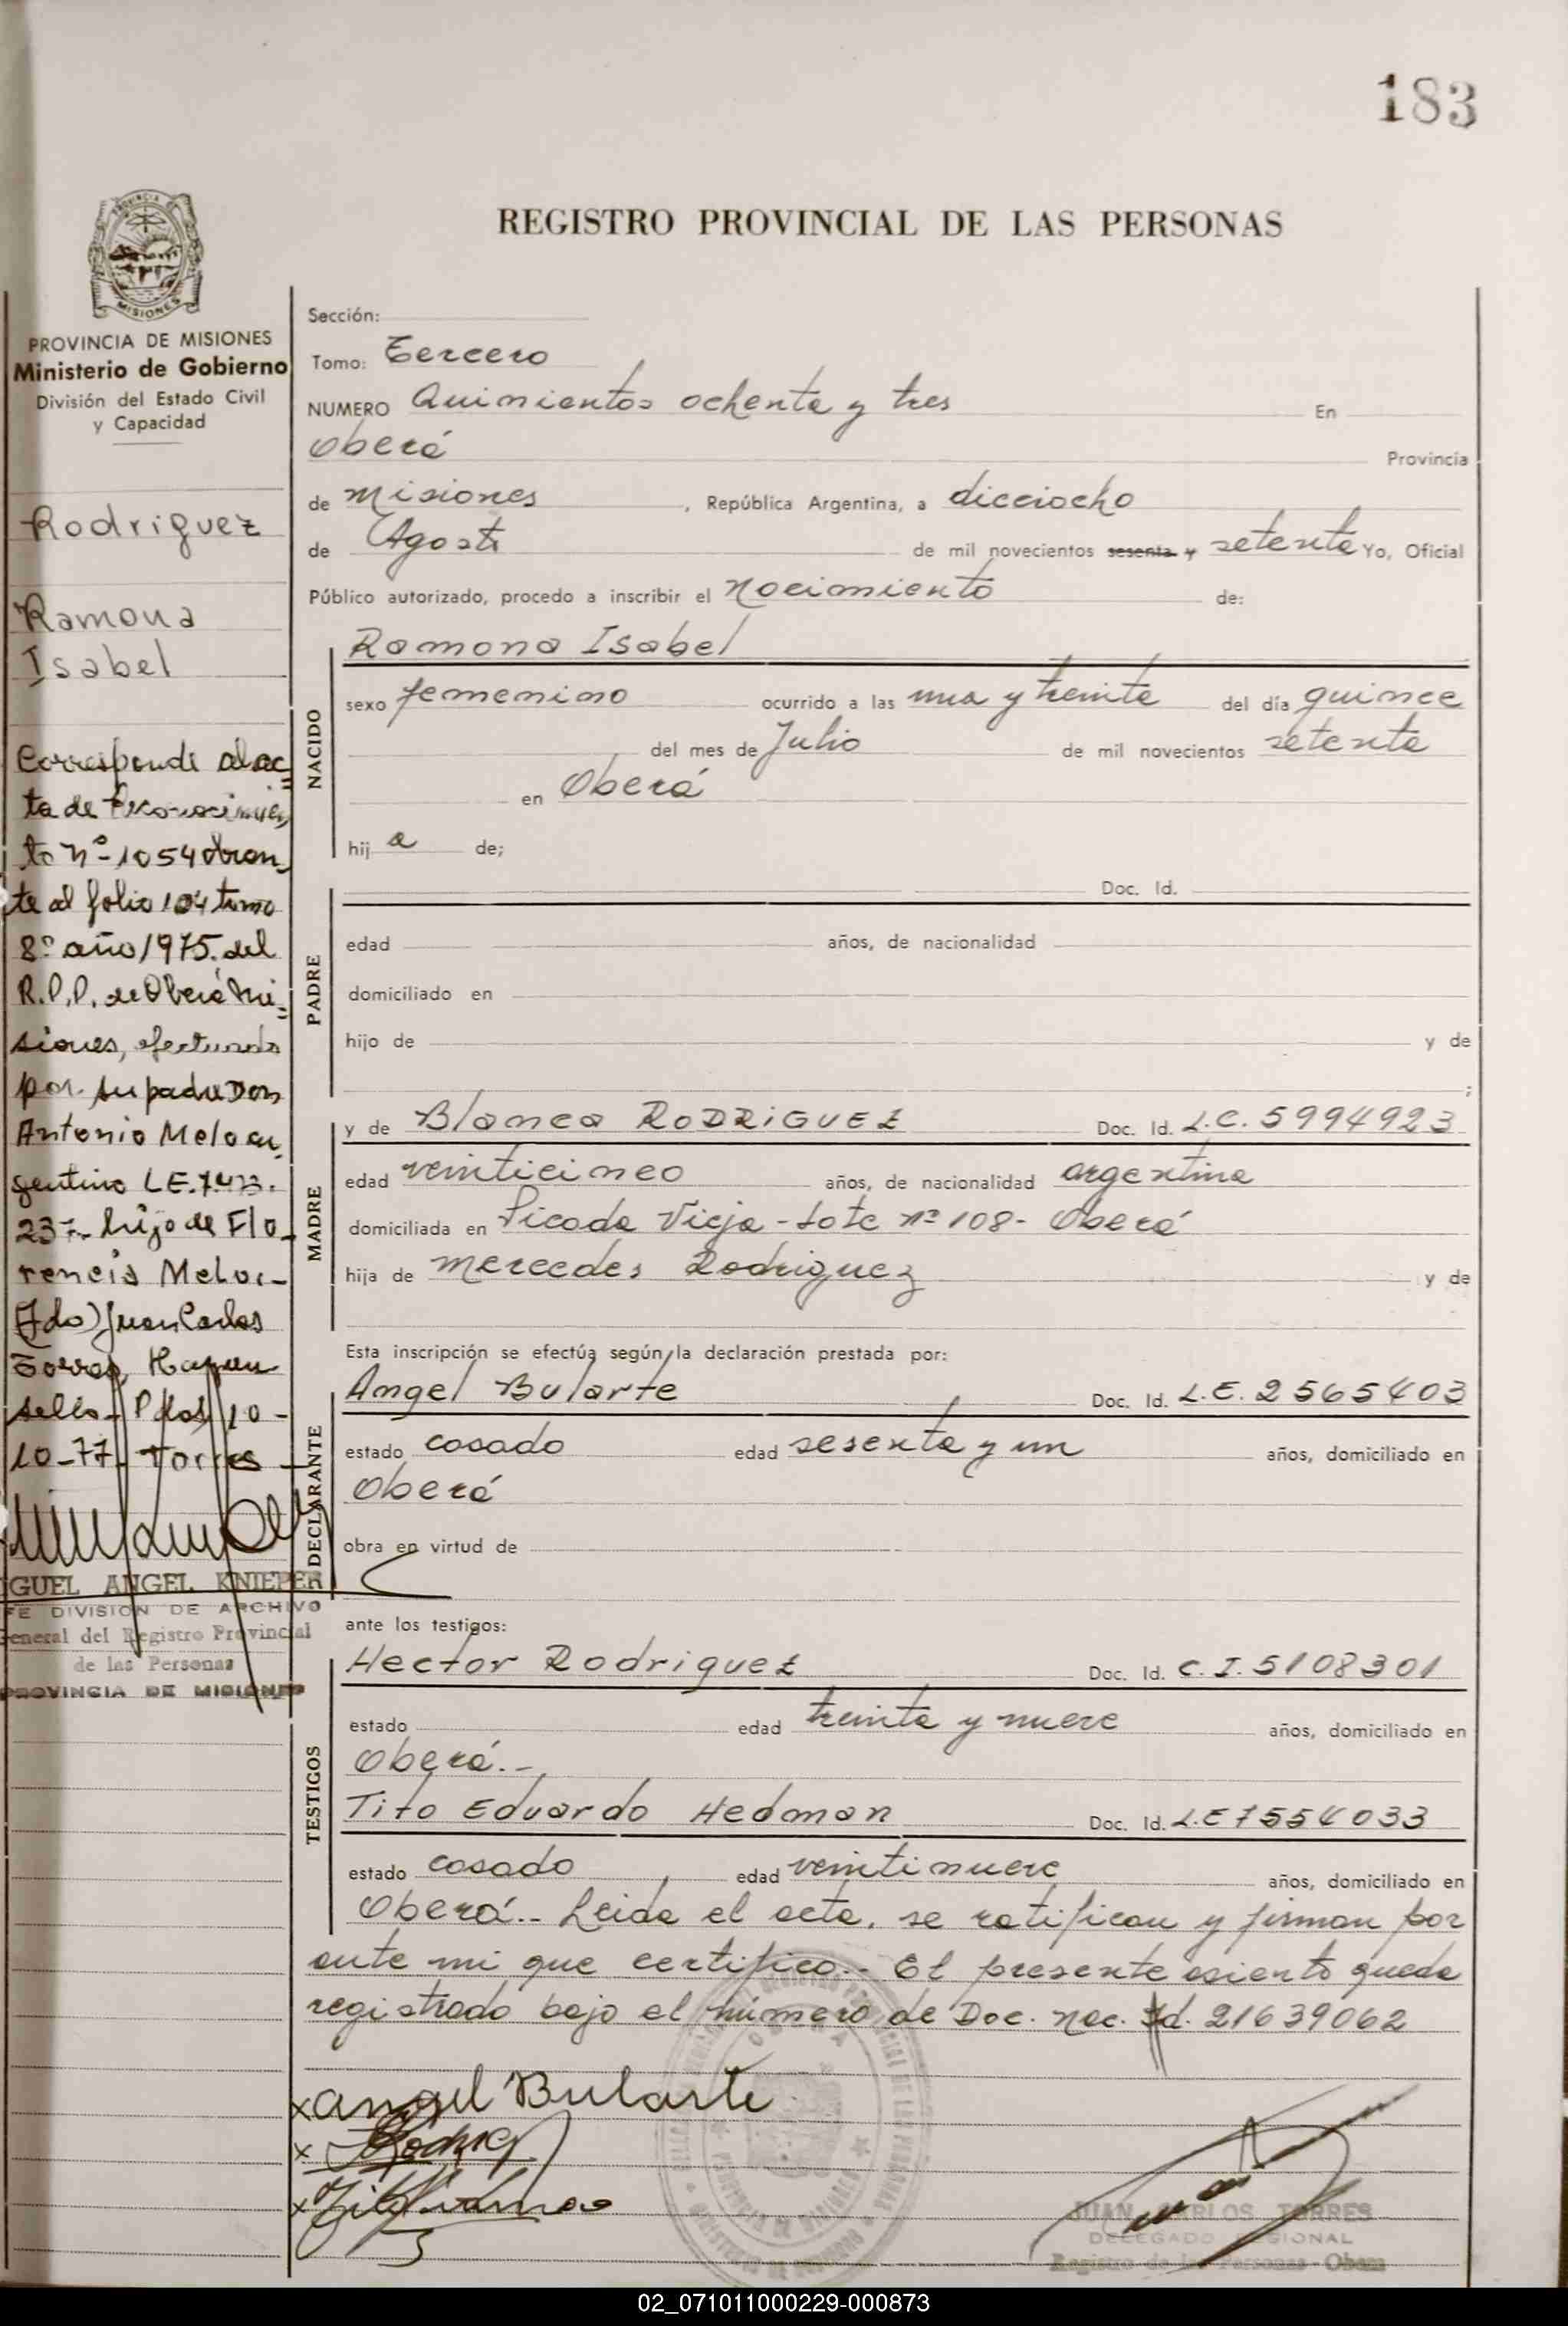 183
REGISTRO PROVINCIAL DE LAS PERSONAS
MISIONES
PROVINCIA DE MISIONES
Ministerio de Gobierno
División del Estado Civil
y Capacidad
Rodriguez
Ramona
Isabel
Correspondi al ac=
ta de Reconocimien
to nº-1054 obran_
te al folio 104 tomo
8º año 1975. del
R.P.P. de Oberá Mi=
siones, efectuado
por su padre Don
Antonio Melo ar_
gentino LE.7.473.
237. hijo de Flo_
rencia Melo.-
(Fdo) Juan Carlos
Torres, Hay un
sello- Pdas 10-
10-77- Torres
GUEL ANGEL KNIEPER
FE DIVISION DE ARCHIVO
General del Registro Provincial
de las Personas
PROVINCIA DE MISIONES
Sección:
Tomo: Tercero
NUMERO Quinientos ochenta y tres En
Oberá Provincia
de Misiones, República Argentina, a dieciocho
de Agosto de mil novecientos sesenta y setenta Yo, Oficial
Público autorizado, procedo a inscribir el Nacimiento de:
NACIDO
Ramona Isabel
sexo femenino ocurrido a las una y treinta del día quince
del mes de Julio de mil novecientos setenta
en Oberá
hij a de;
PADRE
Doc. Id.
edad años, de nacionalidad
domiciliado en
hijo de y de
;
MADRE
y de Blanca RODRIGUEZ Doc. Id. L.C. 5994923
edad veinticinco años, de nacionalidad argentina
domiciliada en Picada Vieja - Lote nº 108 - Oberá
hija de Mercedes Rodriguez y de
Esta inscripción se efectúa según la declaración prestada por:
DECLARANTE
Angel Bularte Doc. Id. L.E. 2565403
estado casado edad sesenta y un años, domiciliado en
Oberá
obra en virtud de
ante los testigos:
TESTIGOS
Hector Rodriguez Doc. Id. C.I. 5108301
estado edad treinta y nueve años, domiciliado en
Oberá.-
Tito Eduardo Hedman Doc. Id. L.E 7554033
estado casado edad veintinueve años, domiciliado en
Oberá.- Leida el acta, se ratifican y firman por
ante mi que certifico.- El presente asiento queda
registrado bajo el número de Doc. Nac. Id. 21639062
x Angel Bularte
x Rodrig
x
JUAN CARLOS TORRES
DELEGADO REGIONAL
Registro de las Personas - Obera
02_071011000229-000873